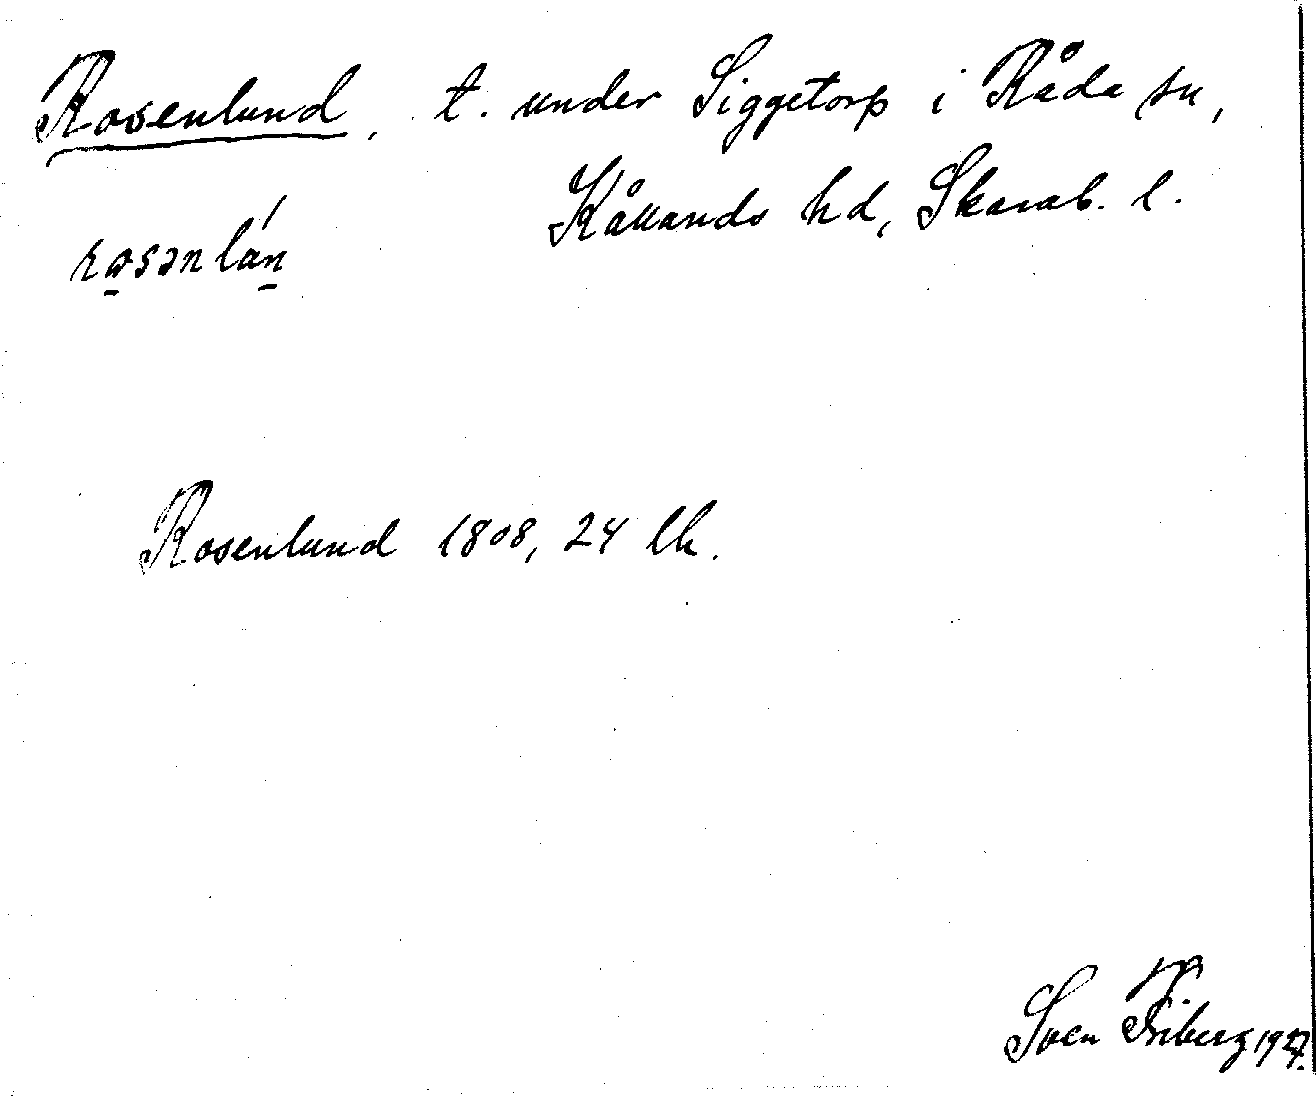 Rosenlund, t. under Siggetorp i Råda sn,
Kållands hd, Skarab. l.
rosənlán
Rosenlund 1808, 24 lk.
Sven Friberg 1927.